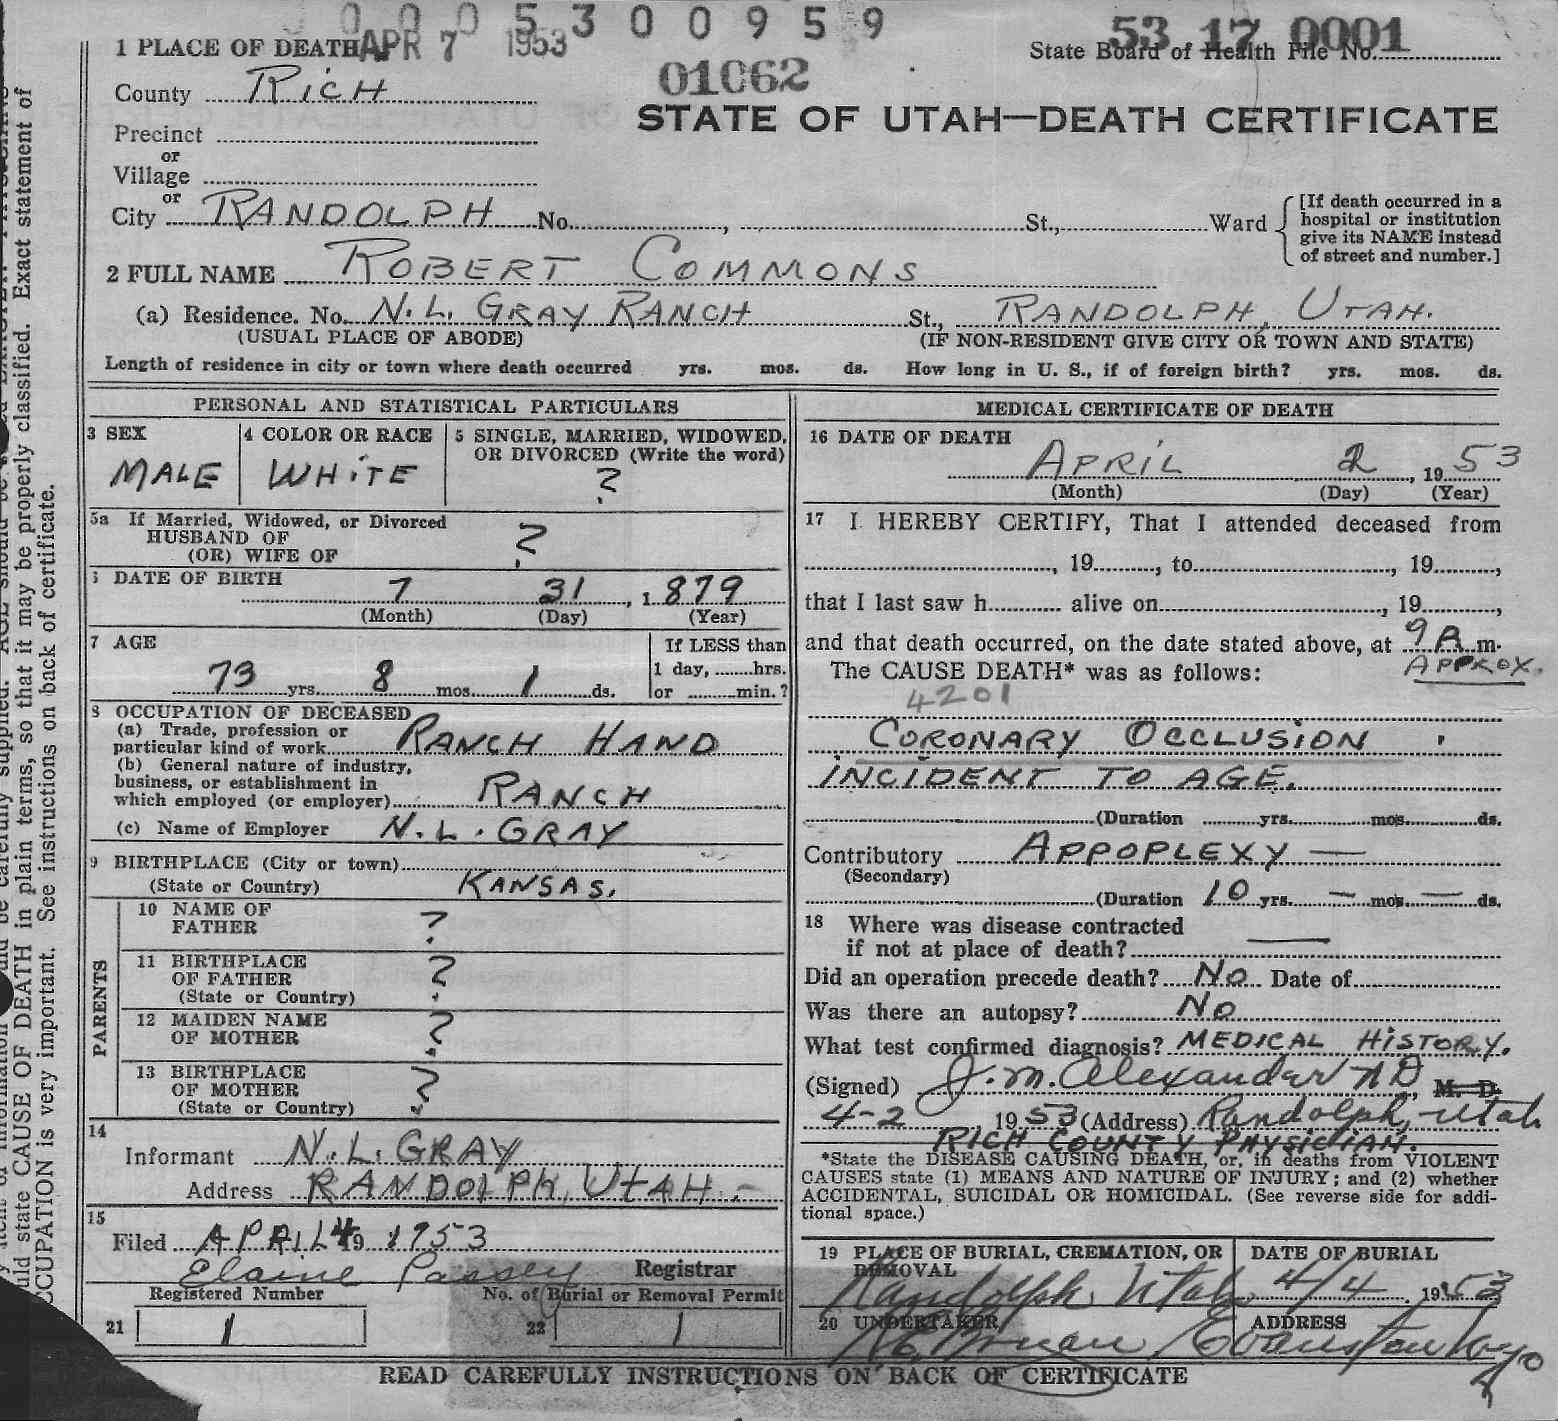 0 0 0 5 3 0 0 9 5 9
53 17 0001
1 PLACE OF DEATH APR 7 1953
State Board of Health File No.
01062
County Rich
STATE OF UTAH—DEATH CERTIFICATE
Precinct
or
Village
or
City RANDOLPH No. , St., Ward
[If death occurred in a
hospital or institution
give its NAME instead
of street and number.]
2 FULL NAME ROBERT COMMONS
(a) Residence. No. N. L. GRAY RANCH St., RANDOLPH, UTAH.
(USUAL PLACE OF ABODE) (IF NON-RESIDENT GIVE CITY OR TOWN AND STATE)
Length of residence in city or town where death occurred yrs. mos. ds. How long in U. S., if of foreign birth? yrs. mos. ds.
PERSONAL AND STATISTICAL PARTICULARS
3 SEX
MALE
4 COLOR OR RACE
WHITE
5 SINGLE, MARRIED, WIDOWED,
OR DIVORCED (Write the word)
?
5a If Married, Widowed, or Divorced
HUSBAND OF
(OR) WIFE OF
?
DATE OF BIRTH 7 31, 1 879
(Month) (Day) (Year)
7 AGE
73 yrs. 8 mos. 1 ds.
If LESS than
1 day, hrs.
or min.?
8 OCCUPATION OF DECEASED
(a) Trade, profession or
particular kind of work RANCH HAND
(b) General nature of industry,
business, or establishment in
which employed (or employer) RANCH
(c) Name of Employer N. L. GRAY
9 BIRTHPLACE (City or town)
(State or Country) KANSAS.
PARENTS
10 NAME OF
FATHER ?
11 BIRTHPLACE
OF FATHER ?
(State or Country)
12 MAIDEN NAME
OF MOTHER ?
13 BIRTHPLACE
OF MOTHER ?
(State or Country)
14
Informant N. L. GRAY
Address RANDOLPH, UTAH -
15
Filed APRIL 4 19 1953
Elaine Passey Registrar
Registered Number No. of Burial or Removal Permit
21 1 22 1
MEDICAL CERTIFICATE OF DEATH
16 DATE OF DEATH
APRIL 2, 19 53
(Month) (Day) (Year)
17 I HEREBY CERTIFY, That I attended deceased from
, 19 , to , 19 ,
that I last saw h alive on , 19 ,
and that death occurred, on the date stated above, at 9 P. m.
APPROX.
The CAUSE DEATH* was as follows:
4201
CORONARY OCCLUSION
INCIDENT TO AGE.
(Duration yrs. mos. ds.
Contributory APPOPLEXY —
(Secondary)
(Duration 10 yrs. — mos — ds.
18 Where was disease contracted
if not at place of death? —
Did an operation precede death? No Date of
Was there an autopsy? No
What test confirmed diagnosis? MEDICAL HISTORY.
(Signed) J. M. Alexander M D, M. D.
4-2, 19 53 (Address) Randolph, Utah.
RICH COUNTY PHYSICIAN.
*State the DISEASE CAUSING DEATH, or, in deaths from VIOLENT
CAUSES state (1) MEANS AND NATURE OF INJURY; and (2) whether
ACCIDENTAL, SUICIDAL OR HOMICIDAL. (See reverse side for addi-
tional space.)
19 PLACE OF BURIAL, CREMATION, OR
REMOVAL
Randolph Utah
DATE OF BURIAL
4/4 19 53
20 UNDERTAKER
ADDRESS
Evanston Wyo
READ CAREFULLY INSTRUCTIONS ON BACK OF CERTIFICATE
Exact statement of
so that it may be properly classified.
uld state CAUSE OF DEATH in plain terms,
CCUPATION is very important. See instructions on back of certificate.